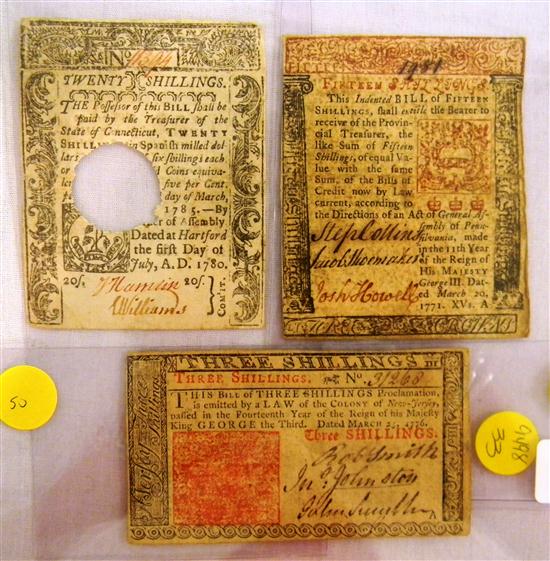 No
TWENTY SHILLINGS.
THE Possessor of this BILL shall be
paid by the Treasurer of the
State of Connecticut, TWENTY
SHILL in Spanish milled dol-
lars six shillings each
or Coins equiva-
le five per Cent,
day of March,
1785.—By
der of Assembly
Dated at Hartford
the first Day of
July, A.D. 1780.
20s. 20s.
COMTE.
JHamlin
Williams
1981
FIFTEEN SHILLINGS.
This Indented BILL of FIFTEEN
SHILLINGS, shall entitle the Bearer to
receive of the Provin-
cial Treasurer, the
like Sum of Fifteen
Shillings, of equal Va-
lue with the same
Sum, of the Bills of
Credit now by Law
current, according to
the Directions of an Act of General As-
sembly of Penn-
sylvania, made
in the 11th Year
of the Reign of
His MAJESTY
George III. Dat-
ed March 20,
1771. XVs. A
Step Collins
Jacob Shoemaker
Josh Howell
THREE SHILLINGS III
THREE SHILLINGS. No. 31268
THIS BILL of THREE SHILLINGS Proclamation,
is emitted by a LAW of the COLONY of New-Jersey,
passed in the Fourteenth Year of the Reign of his Majesty
King GEORGE the Third. Dated MARCH 25, 1776.
Three SHILLINGS.
Rob Smith
Jno. Johnston
John Smyth
A
50
9498
33